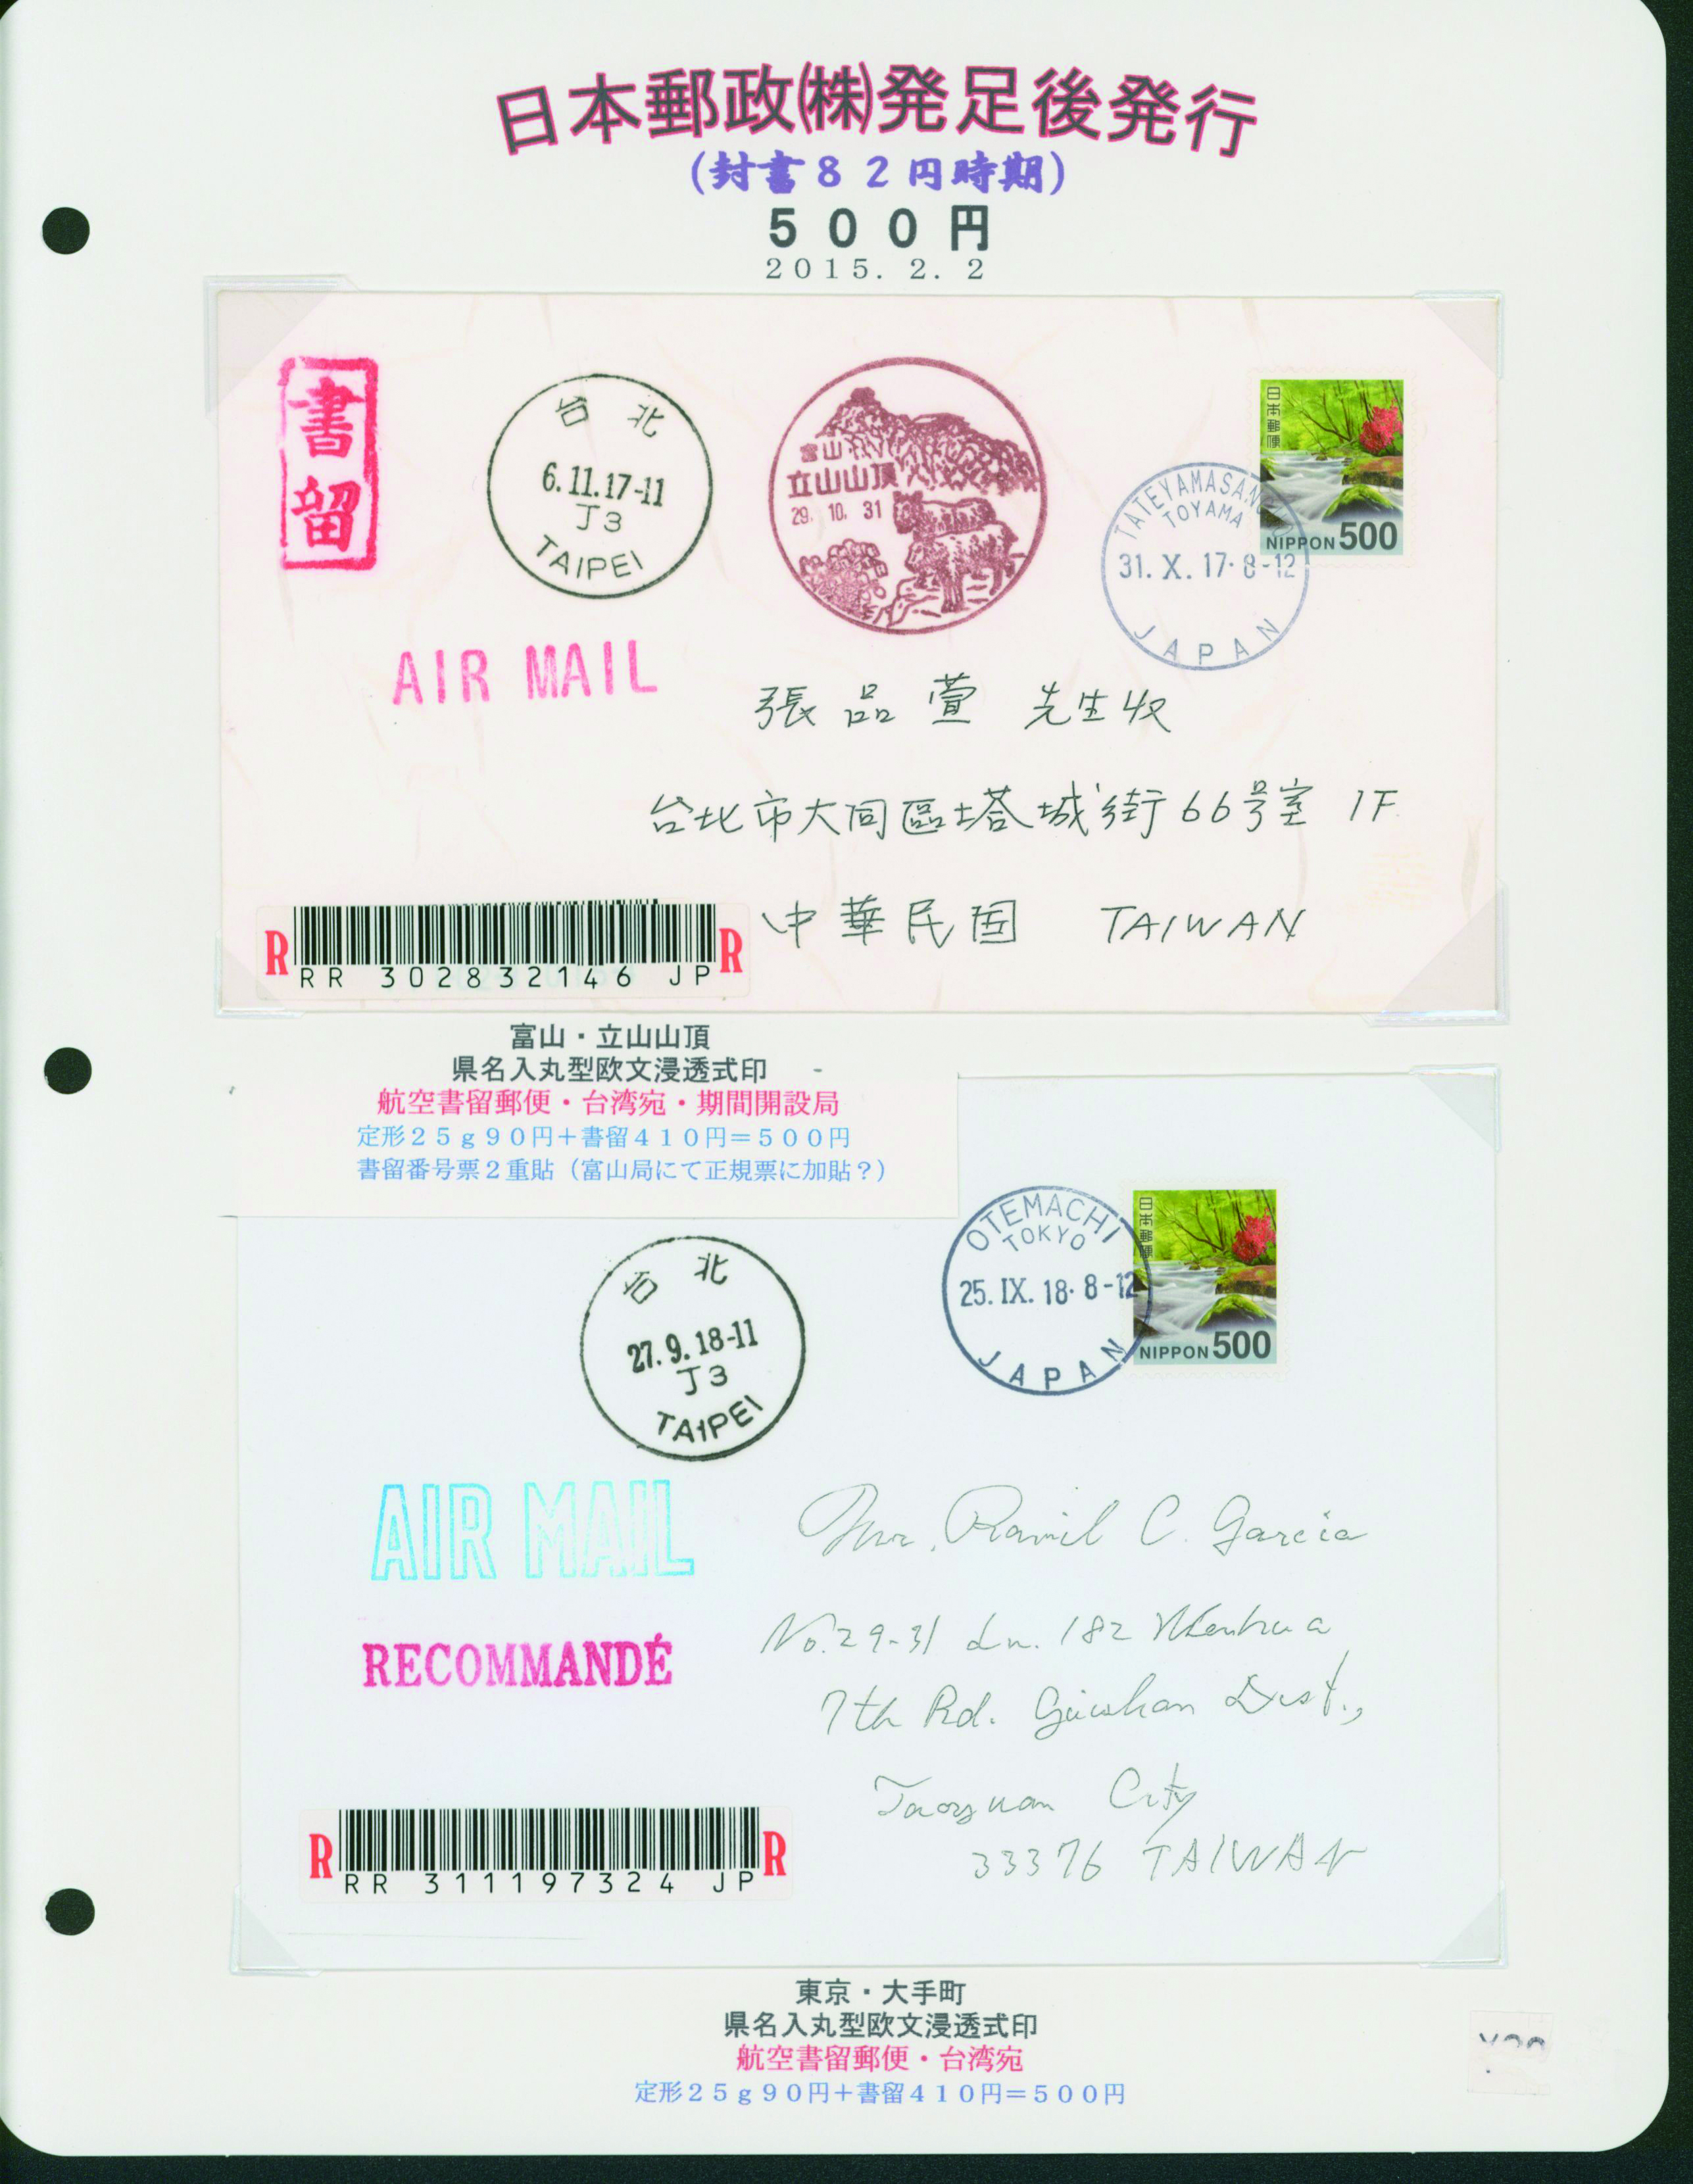 日本郵政㈱発足後発行
(封書82円時期)
500円
2015. 2. 2
書留
台 北
6.11.17-11
J3
TAIPEI
富山
立山山頂
29. 10. 31
日本郵便
NIPPON 500
TOYAMA
31. X. 17· 8-12
JAPAN
AIR MAIL
張品萱 先生收
台北市大同區塔城街66号室 1F
中華民国 TAIWAN
R R
RR 302832146 JP
富山・立山山頂
県名入丸型欧文浸透式印
航空書留郵便・台湾宛・期間開設局
定形25g90円+書留410円=500円
書留番号票2重貼(富山局にて正規票に加貼?)
台 北
27. 9. 18-11
J3
TAIPEI
OTEMACHI
TOKYO
25. IX. 18· 8-12
JAPAN
日本郵便
NIPPON 500
AIR MAIL
RECOMMANDÉ
Mr. Ramil C. Garcia
No.29-31 Ln. 182 Wenhua
7th Rd. Guishan Dist.,
Taoyuan City
33376 TAIWAN
R R
RR 311197324 JP
東京・大手町
県名入丸型欧文浸透式印
航空書留郵便・台湾宛
定形25g90円+書留410円=500円